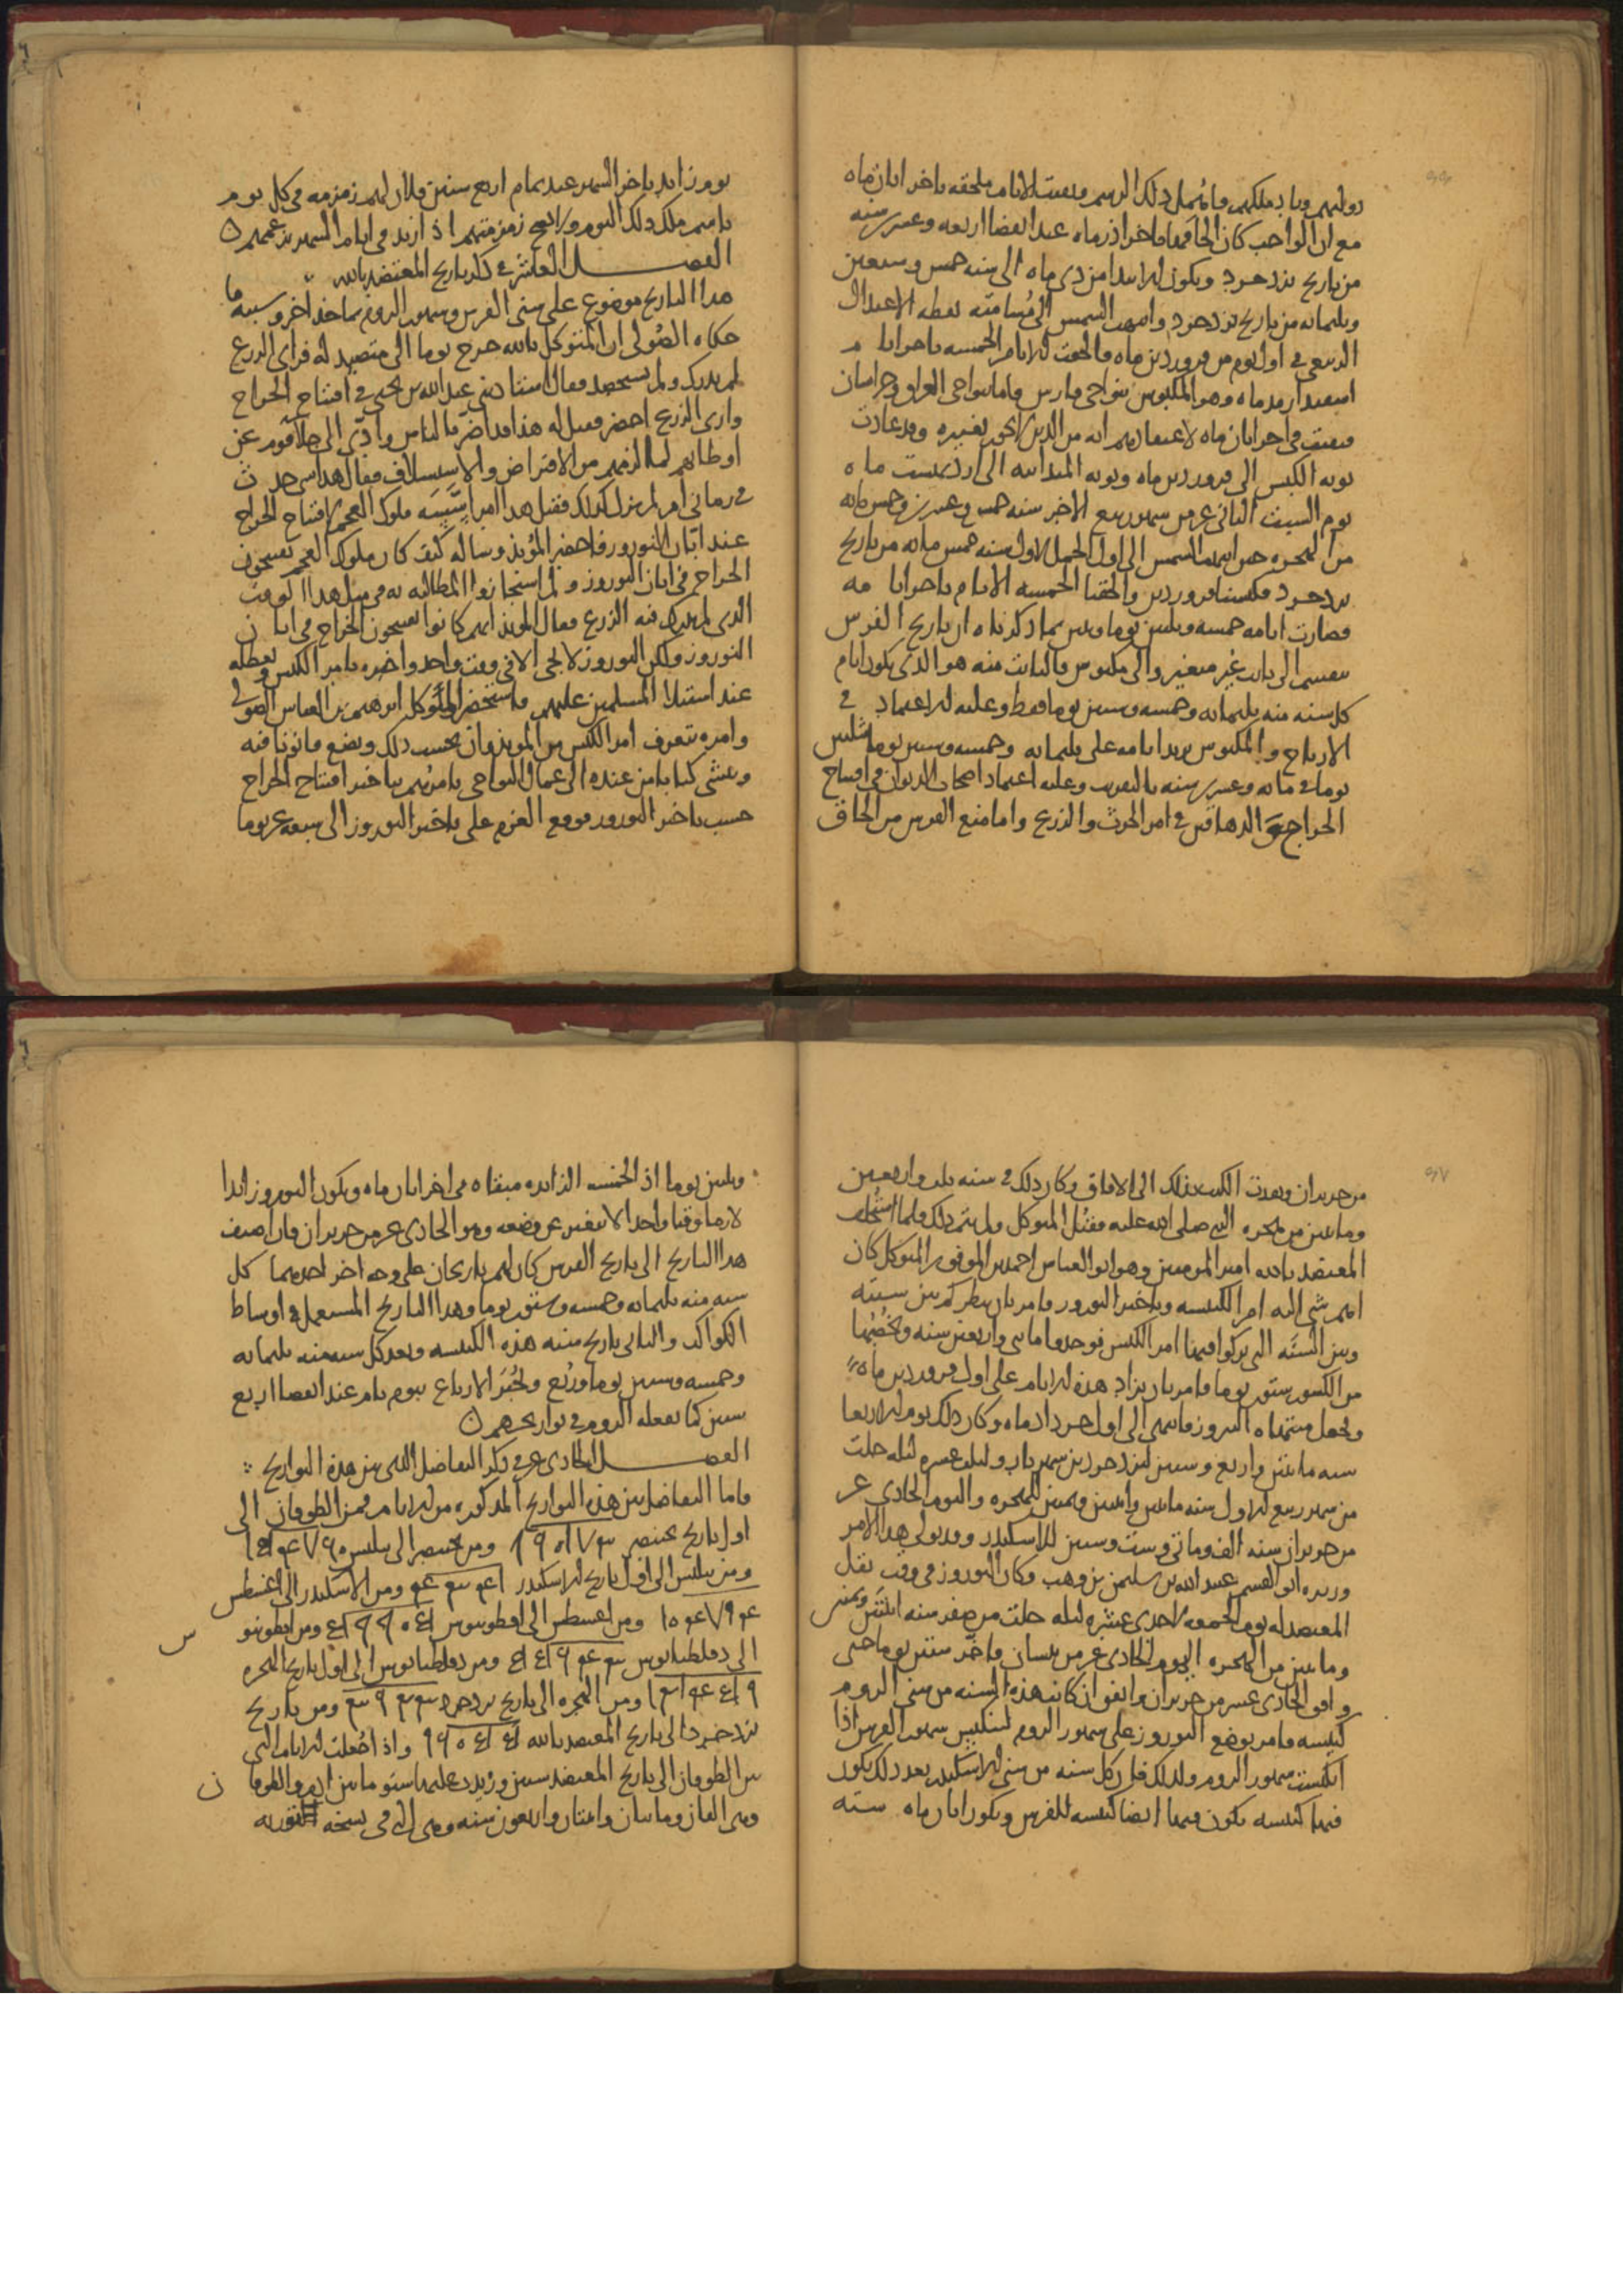 دولتهم وباد ملكهم فاهمل ذلك الرسم وبقيت الايام ملحقه باخر ابان ماه
مع ان الواجب كان الحاقها باخر اذرماه عند انقضا اربعه وعشرين سنه
من تاريخ يزدجرد ويكون الابتدا من دى ماه الى سنه خمس وسبعين
وثلثمائه من تاريخ يزدجرد وانتهت الشمس الى مسامته نقطه الاعتدال
الربيعى فى اول يوم من فروردين ماه والحقت الايام الخمسه باخر
اسفندارمذماه وهو المكبوس بنواحى فارس واما بنواحى العراق وخراسان
فبقيت فى اخر ابان ماه لاعتقادهم انه من الدين لا يجوز تغييره وقد عادت
نوبه الكبس الى فروردين ماه ونوبه المبدا الى اردبهشت ماه
يوم السبت الثانى عشر من شهر ربيع الاخر سنه خمس وعشرين وخمس مائه
من الهجره حين انتهت الشمس الى اول الحمل الاول سنه خمس مائه من تاريخ
يزدجرد فكبسنا فروردين والحقنا الخمسه الايام باخر
فصارت ايامه خمسه وثلثين يوما وتبين بما ذكرناه ان تاريخ الفرس
ينقسم الى ثابت غير متغير والى مكبوس فالثابت منه هو الذى يكون ايام
كل سنه منه ثلثمائه وخمسه وستين يوما فقط وعليه الاعتماد فى
الزيجات والمكبوس يزيد ايامه على ثلثمائه وخمسه وستين يوما ثلثين
يوما فى مائه وعشرين سنه بالتقريب وعليه اعتماد اصحاب الديوان فى افتتاح
الخراج والدهاقين فى امر الحرث والزرع واما منع الفرس من الحاق
يوم زايد باخر الشهر عند تمام اربع سنين فلان لهم زمزمه فى كل يوم
باسم ملك ذلك اليوم ولا تصح زمزمتهم اذ ازيد فى ايام الشهر بزعمهم
الفصل العاشر فى ذكر تاريخ المعتضد بالله
هذا التاريخ موضوع على سنى الفرس وشهور الروم بماخذ اخر وسببه ما
حكاه الصولى ان المتوكل بالله خرج يوما الى متصيد له فراى الزرع
لم يدرك ولم يستحصد فقال استاذننى عبد الله بن يحيى فى افتتاح الخراج
وارى الزرع اخضر فقيل له هذا قد اضر بالناس وادى الى جلا قوم عن
اوطانهم لما لزمهم من الاقتراض والاستسلاف فقال هذا شى حدث
فى زمانى ام لم يزل كذلك فقيل هذا امر اسسه ملوك العجم لافتتاح الخراج
عند ابان النوروز فاحضر الموبذ وساله كيف كان ملوك العجم يفتتحون
الخراج فى ابان النوروز ولم استجازوا المطالبه به فى مثل هذا الوقت
الذى لم يدرك فيه الزرع فقال الموبذ انهم كانوا يفتتحون الخراج فى ابان
النوروز ولكن النوروز لا يجى الا فى وقت واحد واخبره بامر الكبس وتعطله
عند استيلا المسلمين عليهم فاستحضر المتوكل ابرهيم بن العباس الصولى
وامره بتعرف امر الكبس من الموبذ وان يحسب ذلك ويضع قانونا فيه
وينشى كتابا من عنده الى عمال النواحى يامرهم بتاخير افتتاح الخراج
حسب تاخير النوروز فوقع العزم على تاخير النوروز الى سبعه عشر يوما
من حزيران ونفذت الكتب بذلك الى الافاق وكان ذلك فى سنه ثلث واربعين
ومائتين من هجره النبى صلى الله عليه فقتل المتوكل ولم يتم ذلك فلما استخلف
المعتضد بالله امير المومنين وهو ابو العباس احمد بن الموفق بن المتوكل كان
اهم شى اليه امر الكبيسه وتاخير النوروز فامر بان ينظر كم بين سنته
وبين السنه التى تركوا فيها امر الكبس فوجدوا مائتى واربعين سنه وتخصها
من الكسور ستون يوما فامر بان يزاد هذه الايام على اول فروردين ماه
وتجعل منتهاه النيروز فانتهى الى اول خرداد ماه وكان ذلك يوم الاربعا
سنه مائتين واربع وستين ليزدجرد بن شهريار ولثلث عشره ليله خلت
من شهر ربيع الاول سنه مائتين واثنين وثمنين للهجره واليوم الحادى عشر
من حزيران سنه الف ومائتى وست وستين للاسكندر وقد تولى هذا الامر
وزيره ابو القسم عبيد الله بن سليمن بن وهب وكان النوروز فى وقت نقل
المعتضد له يوم الجمعه لاحدى عشره ليله خلت من صفر سنه اثنتين وثمنين
ومائتين من الهجره اليوم الحادى عشر من نيسان فاخر ستين يوما حتى
وافق الحادى عشر من حزيران واتفق ان كانت هذه السنه من سنى الروم
كبيسه فامر بوضع النوروز على شهور الروم لتنكبس شهور الفرس اذا
انكبست شهور الروم ولذلك فان كل سنه من سنى الاسكندر بعد ذلك يكون
فيها كبيسه تكون فيها ايضا كبيسه للفرس ويكون ابان ماه سته
وثلثين يوما اذ الخمسه الزائده مبقاه فى اخر ابان ماه ويكون النوروز ابدا
لازما وقتا واحدا لا يتغير عن وضعه وهو الحادى عشر من حزيران فان اضيف
هذا التاريخ الى تاريخ الفرس كان لهم تاريخان على وجه اخر احدهما كل
سنه منه ثلثمائه وخمسه وستون يوما وهذا التاريخ المستعمل فى اوساط
الكواكب والثانى تاريخ منبه هذه الكبيسه ويعد كل سنه منه ثلثمائه
وخمسه وستين يوما وربع وتجبر الارباع بيوم تام عند انقضا اربع
سنين كما يفعله الروم فى تواريخهم
الفصل الحادى عشر فى ذكر التفاضل الذى بين هذه التواريخ
فاما التفاضل بين هذه التواريخ المذكوره من الايام فمن الطوفان الى
اول تاريخ بختنصر ومن بختنصر الى فيلبس
ومن فيلبس الى اول تاريخ الاسكندر ومن الاسكندر الى اغسطس
ومن اغسطس الى انطونينوس ومن انطونينو س
الى دقلطيانوس ومن دقلطيانوس الى اول تاريخ الهجره
ومن الهجره الى تاريخ يزدجرد ومن تاريخ
يزدجرد الى تاريخ المعتضد بالله واذا جعلت الايام التى
من الطوفان الى تاريخ المعتضد سنين وزيدت عليها سنو مابين ادم والطوفا ن
وهى الفان ومائتان واثنتان واربعون سنه وهى التى فى نسخه التوريه